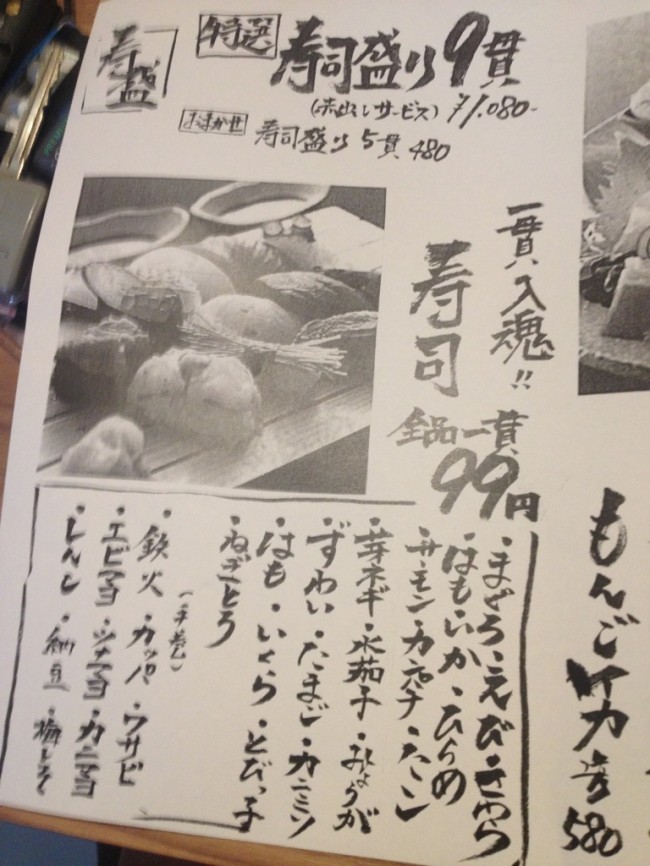 寿盛
特選 寿司盛り9貫
(赤出しサービス) ¥1,080-
おまかせ 寿司盛り5貫 480
一貫入魂!!
寿司
全品一貫
99円
・まぐろ・えび・さわら
・はも・いか・ひらめ
・サーモン・カンパチ・たこ
・芽ネギ・水茄子・みょうが
・ずわい・たまご・カニミソ
・はも・いくら・とびっ子
・ねぎとろ
(手巻)
・鉄火・カッパ・ワサビ
・エビマヨ・ツナマヨ・カニマヨ
・しんし・納豆・梅しそ
もんごイカ
580